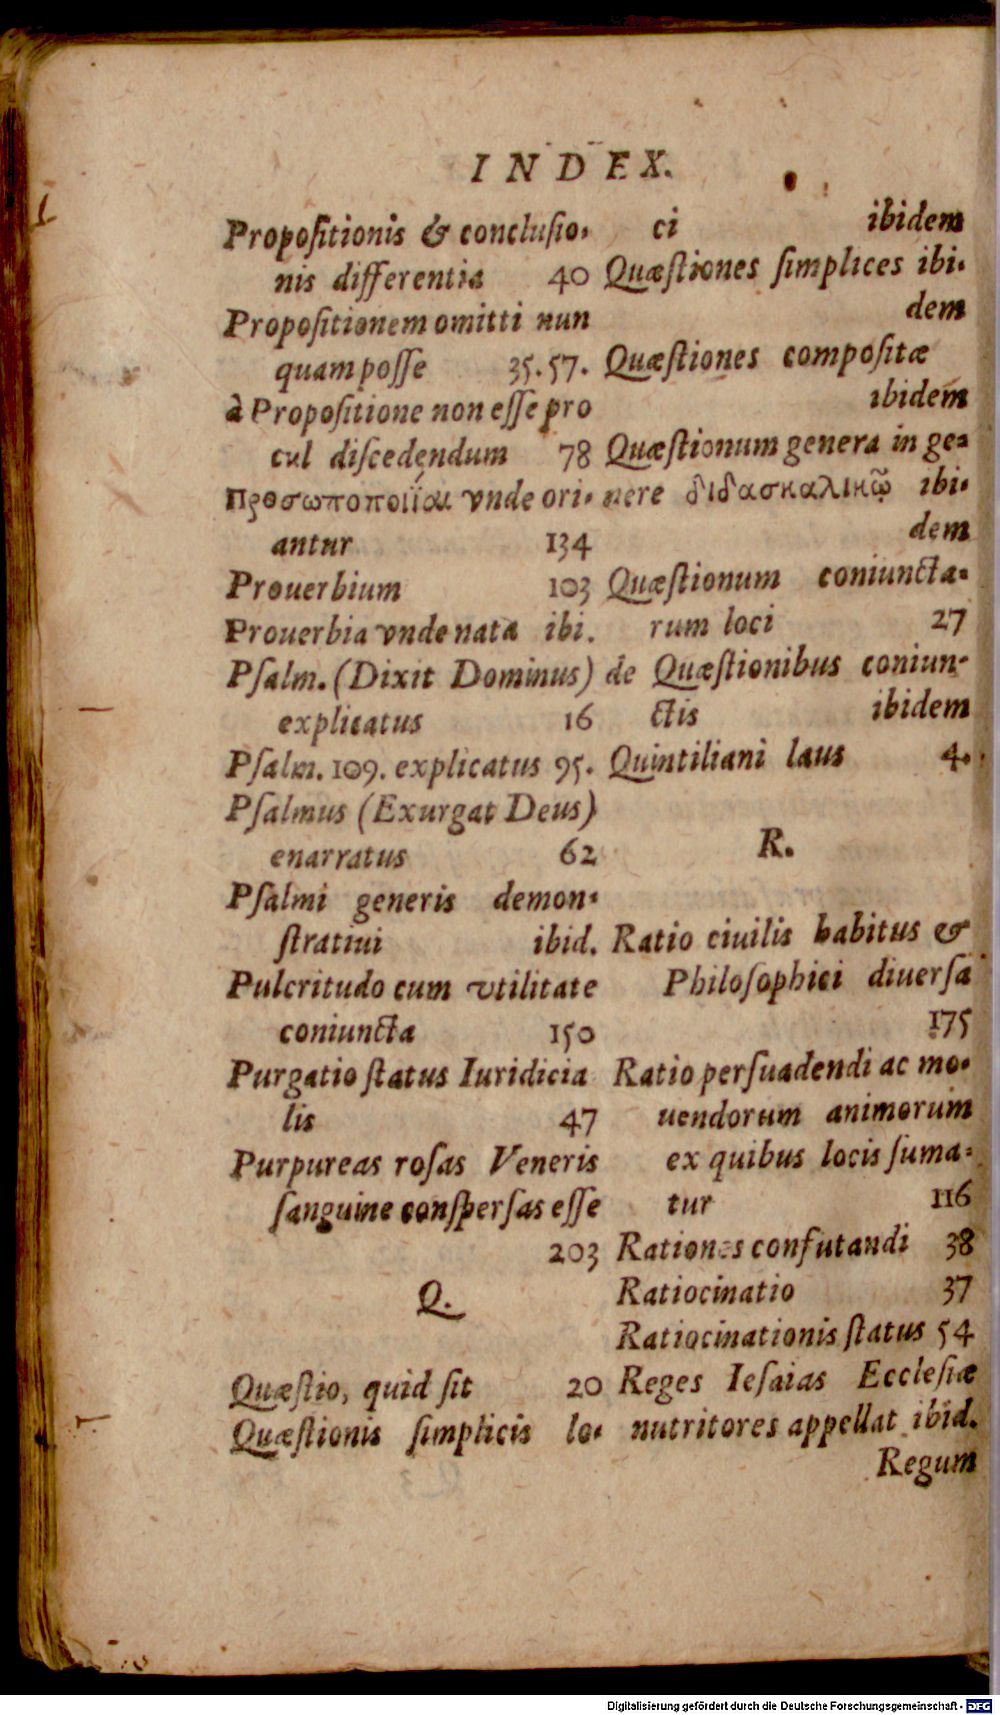 INDEX.
Propoſitionis & concluſio-
nis differentia 40
Propoſitionem omitti nun
quam poſſe 35. 57.
à Propoſitione non eſſe pro
cul diſcedendum 78
Προσωποποιΐαι vnde ori-
antur 134
Prouerbium 103
Prouerbia vnde nata ibi.
Pſalm. (Dixit Dominus)
explicatus 16
Pſalm. 109. explicatus 95.
Pſalmus (Exurgat Deus)
enarratus 62
Pſalmi generis demon-
ſtratiui ibid.
Pulcritudo cum vtilitate
coniuncta 150
Purgatio ſtatus Iuridicia
lis 47
Purpureas roſas Veneris
ſanguine conſperſas eſſe
203
Q.
Quæſtio, quid ſit 20
Quæſtionis ſimplicis lo-
ci ibidem
Quæſtiones ſimplices ibi-
dem
Quæſtiones compoſitæ
ibidem
Quæſtionum genera in ge-
nere διδασκαλικῷ ibi-
dem
Quæſtionum coniuncta-
rum loci 27
de Quæſtionibus coniun-
ctis ibidem
Quintiliani laus 4.
R.
Ratio ciuilis habitus &
Philoſophici diuerſa
175
Ratio perſuadendi ac mo-
uendorum animorum
ex quibus locis ſuma-
tur 116
Rationes confutandi 38
Ratiocinatio 37
Ratiocinationis ſtatus 54
Reges Ieſaias Eccleſiæ
nutritores appellat ibid.
Regum
Digitalisierung gefördert durch die Deutsche Forschungsgemeinschaft - DFG